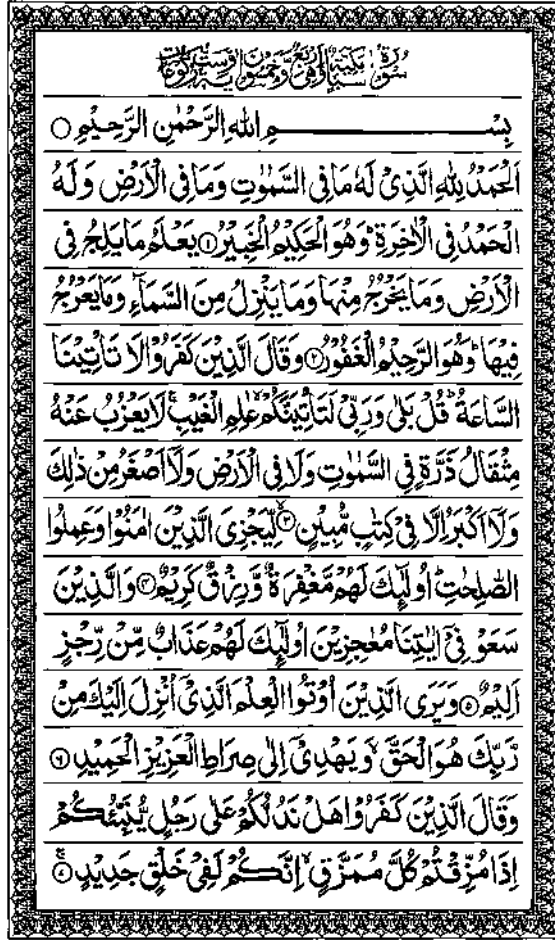 سُوْرَةُ سَبَاٍ مَّكِّيَّةٌ وَّهِیَ اَرْبَعٌ وَّخَمْسُوْنَ اٰيَةً وَّسِتُّ رُكُوْعَاتٍ
بِسْمِ اللهِ الرَّحْمٰنِ الرَّحِيْمِ ○
اَلْحَمْدُ لِلّٰهِ الَّذِیْ لَهٗ مَا فِی السَّمٰوٰتِ وَمَا فِی الْاَرْضِ وَلَهُ
الْحَمْدُ فِی الْاٰخِرَةِ ؕ وَهُوَ الْحَكِيْمُ الْخَبِيْرُ ① يَعْلَمُ مَا يَلِجُ فِی
الْاَرْضِ وَمَا يَخْرُجُ مِنْهَا وَمَا يَنْزِلُ مِنَ السَّمَآءِ وَمَا يَعْرُجُ
فِيْهَا ؕ وَهُوَ الرَّحِيْمُ الْغَفُوْرُ ② وَقَالَ الَّذِيْنَ كَفَرُوْا لَا تَاْتِيْنَا
السَّاعَةُ ؕ قُلْ بَلٰی وَرَبِّیْ لَتَاْتِيَنَّكُمْ ۙ عٰلِمِ الْغَيْبِ ۚ لَا يَعْزُبُ عَنْهُ
مِثْقَالُ ذَرَّةٍ فِی السَّمٰوٰتِ وَلَا فِی الْاَرْضِ وَلَاۤ اَصْغَرُ مِنْ ذٰلِكَ
وَلَاۤ اَكْبَرُ اِلَّا فِیْ كِتٰبٍ مُّبِيْنٍ ③ لِّيَجْزِیَ الَّذِيْنَ اٰمَنُوْا وَعَمِلُوا
الصّٰلِحٰتِ ؕ اُولٰٓئِكَ لَهُمْ مَّغْفِرَةٌ وَّرِزْقٌ كَرِيْمٌ ④ وَالَّذِيْنَ
سَعَوْ فِیْۤ اٰيٰتِنَا مُعٰجِزِيْنَ اُولٰٓئِكَ لَهُمْ عَذَابٌ مِّنْ رِّجْزٍ
اَلِيْمٌ ⑤ وَيَرَی الَّذِيْنَ اُوْتُوا الْعِلْمَ الَّذِیْۤ اُنْزِلَ اِلَيْكَ مِنْ
رَّبِّكَ هُوَ الْحَقَّ ۙ وَيَهْدِیْۤ اِلٰی صِرَاطِ الْعَزِيْزِ الْحَمِيْدِ ⑥
وَقَالَ الَّذِيْنَ كَفَرُوْا هَلْ نَدُلُّكُمْ عَلٰی رَجُلٍ يُّنَبِّئُكُمْ
اِذَا مُزِّقْتُمْ كُلَّ مُمَزَّقٍ ۙ اِنَّكُمْ لَفِیْ خَلْقٍ جَدِيْدٍ ⑦